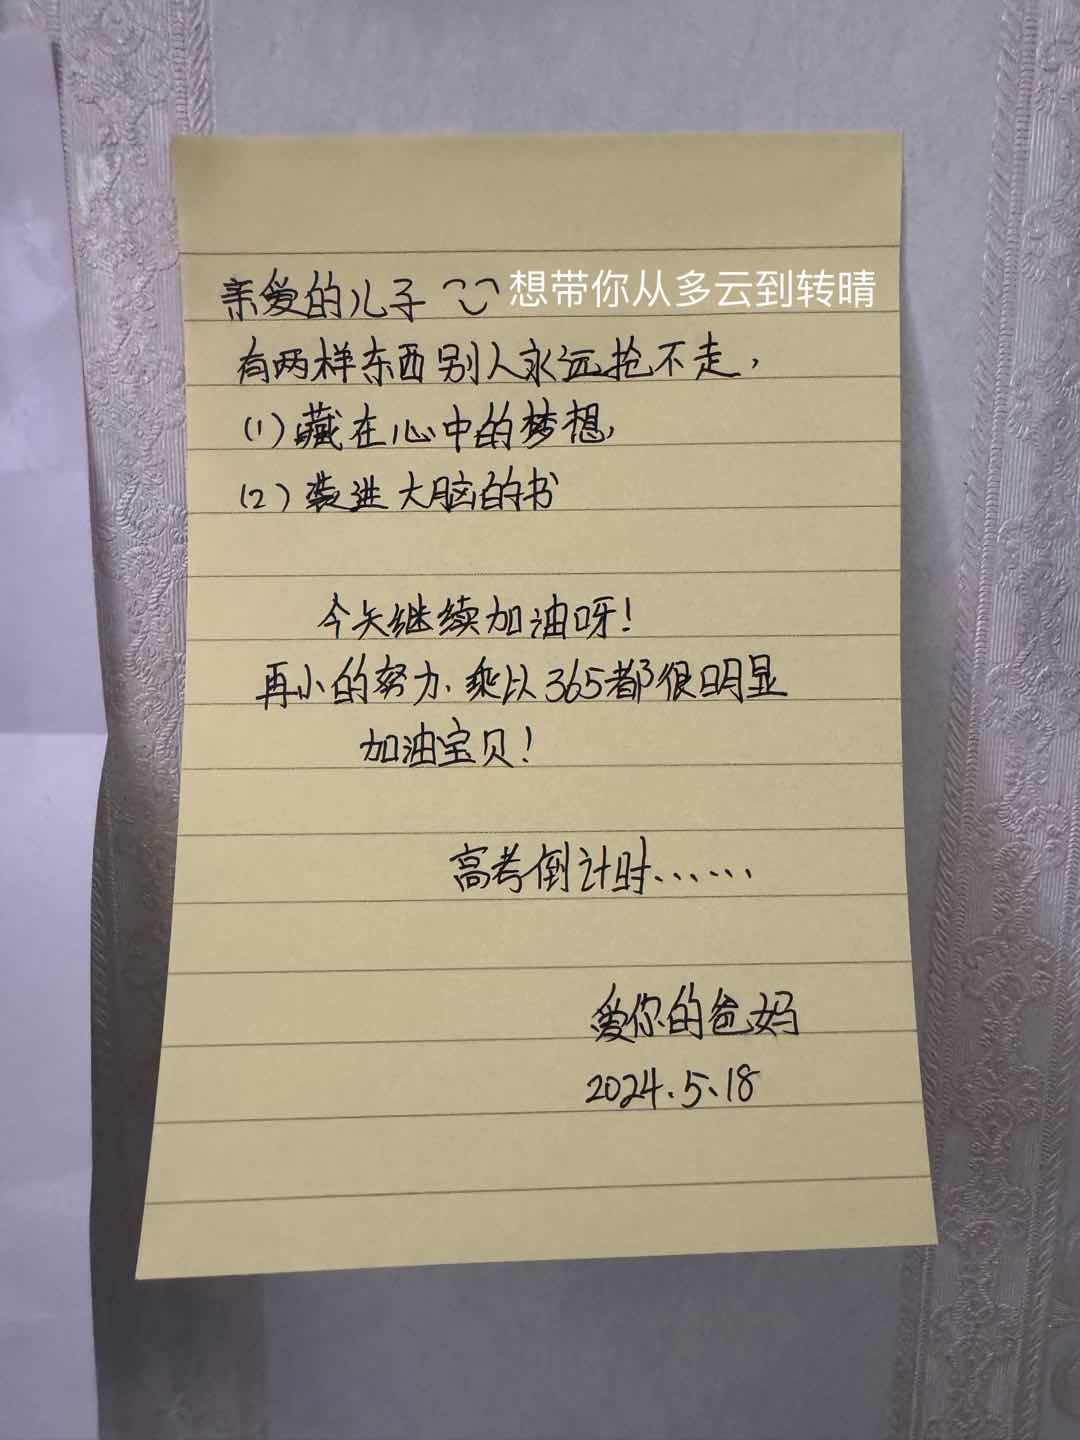 亲爱的儿子 想带你从多云到转晴
有两样东西别人永远抢不走，
(1) 藏在心中的梦想，
(2) 装进大脑的书
今天继续加油呀！
再小的努力、乘以365都很明显
加油宝贝！
高考倒计时……
爱你的爸妈
2024.5.18